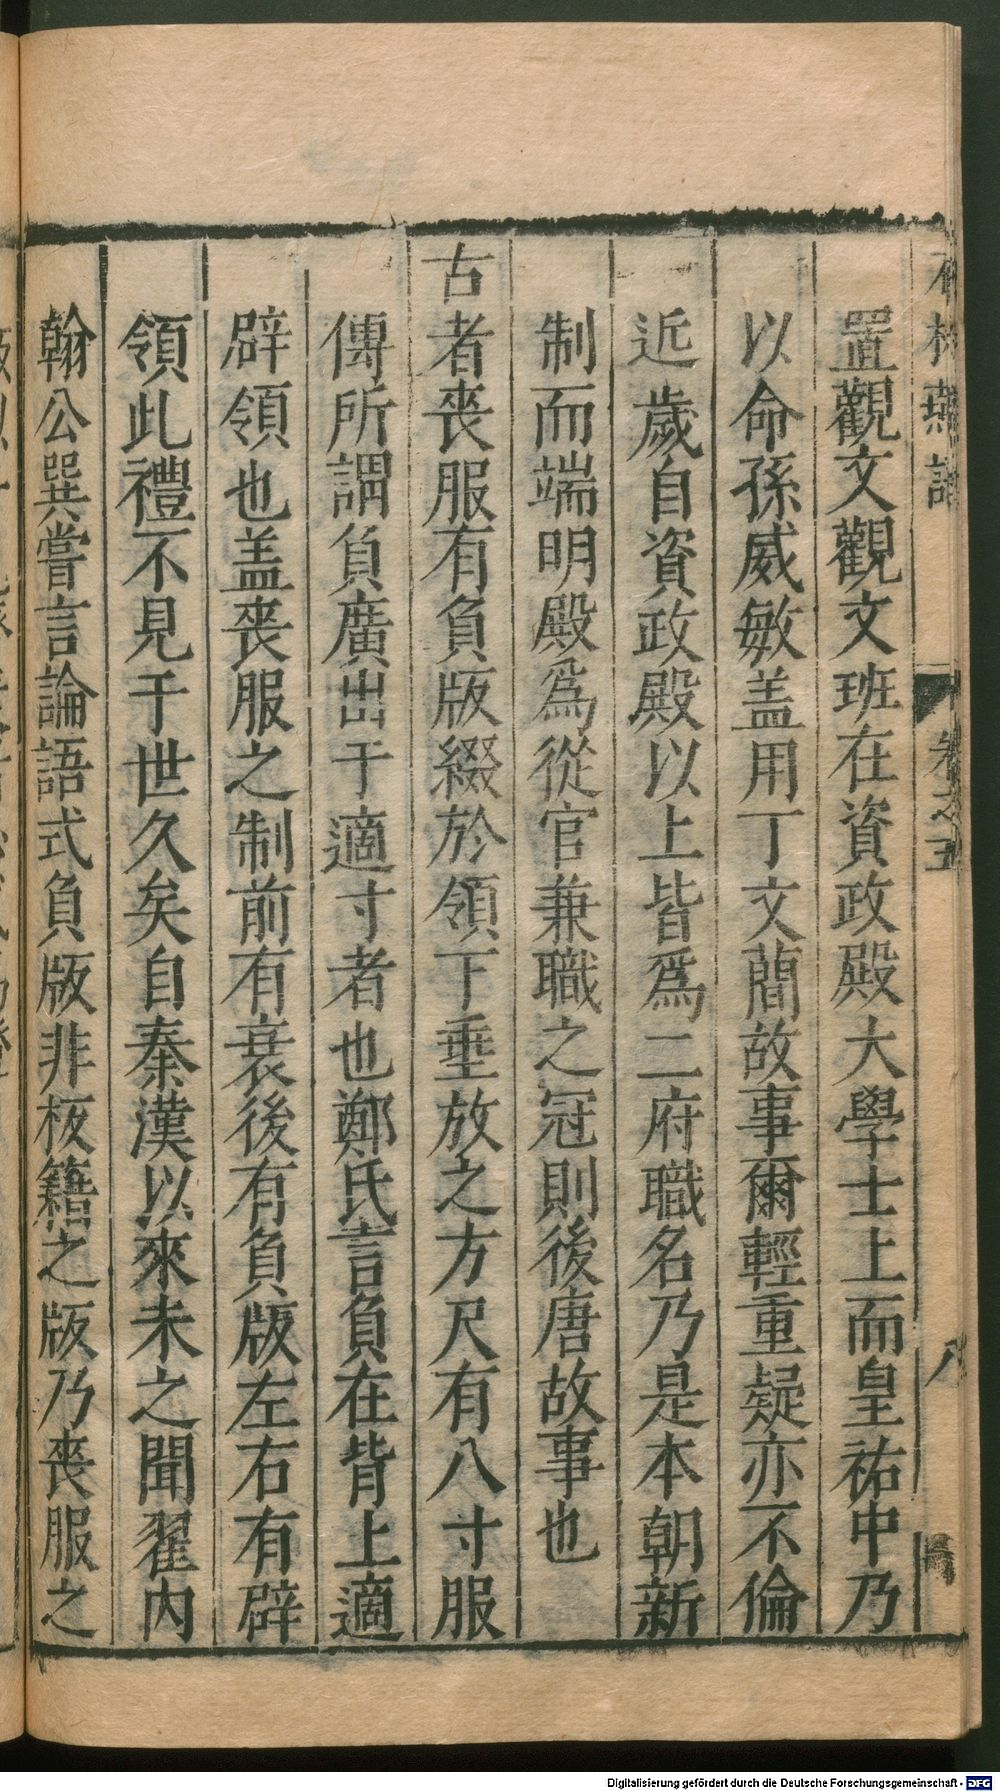 石林燕語
卷之五
八
置觀文觀文班在資政殿大學士上而皇祐中乃
以命孫威敏盖用丁文簡故事爾輕重疑亦不倫
近歲自資政殿以上皆爲二府職名乃是本朝新
制而端明殿爲從官兼職之冠則後唐故事也
古者喪服有負版綴於領下垂放之方尺有八寸服
傳所謂負廣出于適寸者也鄭氏言負在背上適
辟領也盖喪服之制前有衰後有負版左右有辟
領此禮不見于世久矣自秦漢以來未之聞翟内
翰公巽嘗言論語式負版非板籍之版乃喪服之
Digitalisierung gefördert durch die Deutsche Forschungsgemeinschaft - DFG